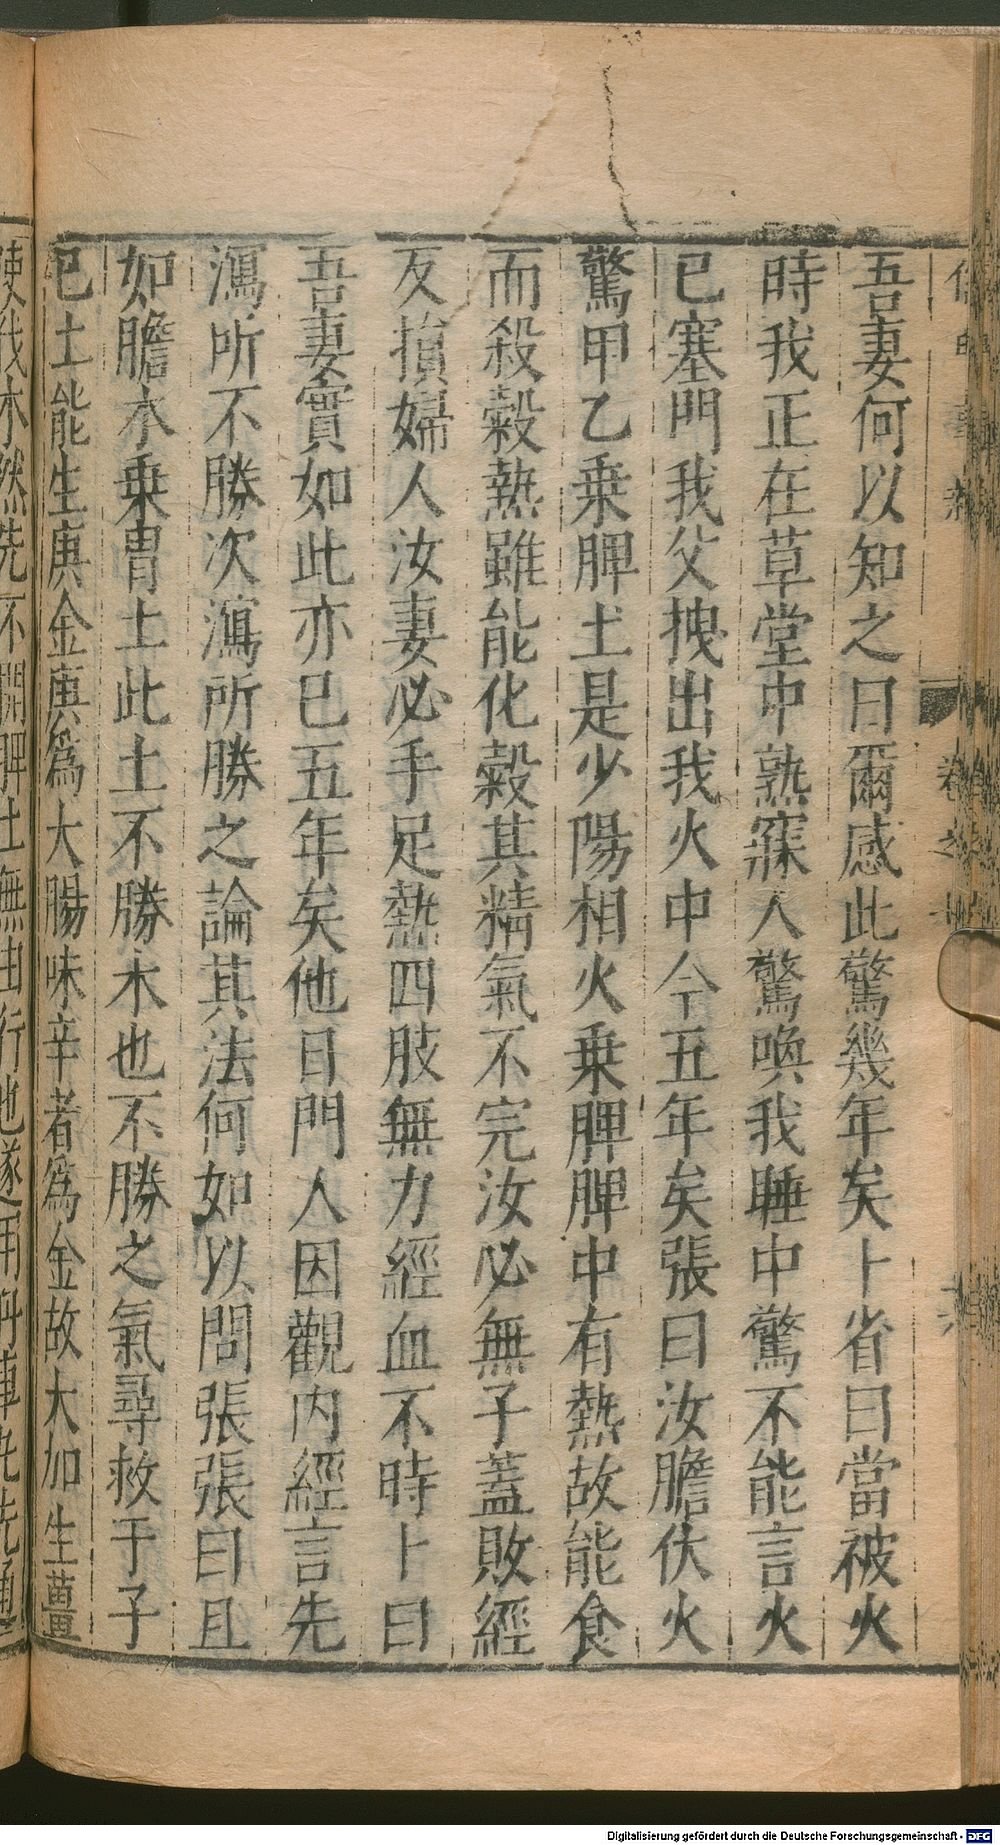 吾妻何以知之曰爾感此驚幾年矣卜省曰當被火
時我正在草堂中熟寐人驚喚我睡中驚不能言火
已塞門我父拽出我火中今五年矣張曰汝膽伏火
驚甲乙乗脾土是少陽相火乗脾脾中有熱故能食
而殺穀熱雖能化穀其精氣不完汝必無子蓋敗經
反損婦人汝妻必手足熱四肢無力經血不時卜曰
吾妻實如此亦已五年矣他日門人因觀內經言先
瀉所不勝次瀉所勝之論其法何如以問張張曰且
如膽木乗胃土此土不勝木也不勝之氣尋救于子
已土能生庚金庚爲大腸味辛者爲金故大加生薑
使伐木然先不開脾土無由行也遂用舟車丸先通
Digitalisierung gefördert durch die Deutsche Forschungsgemeinschaft - DFG